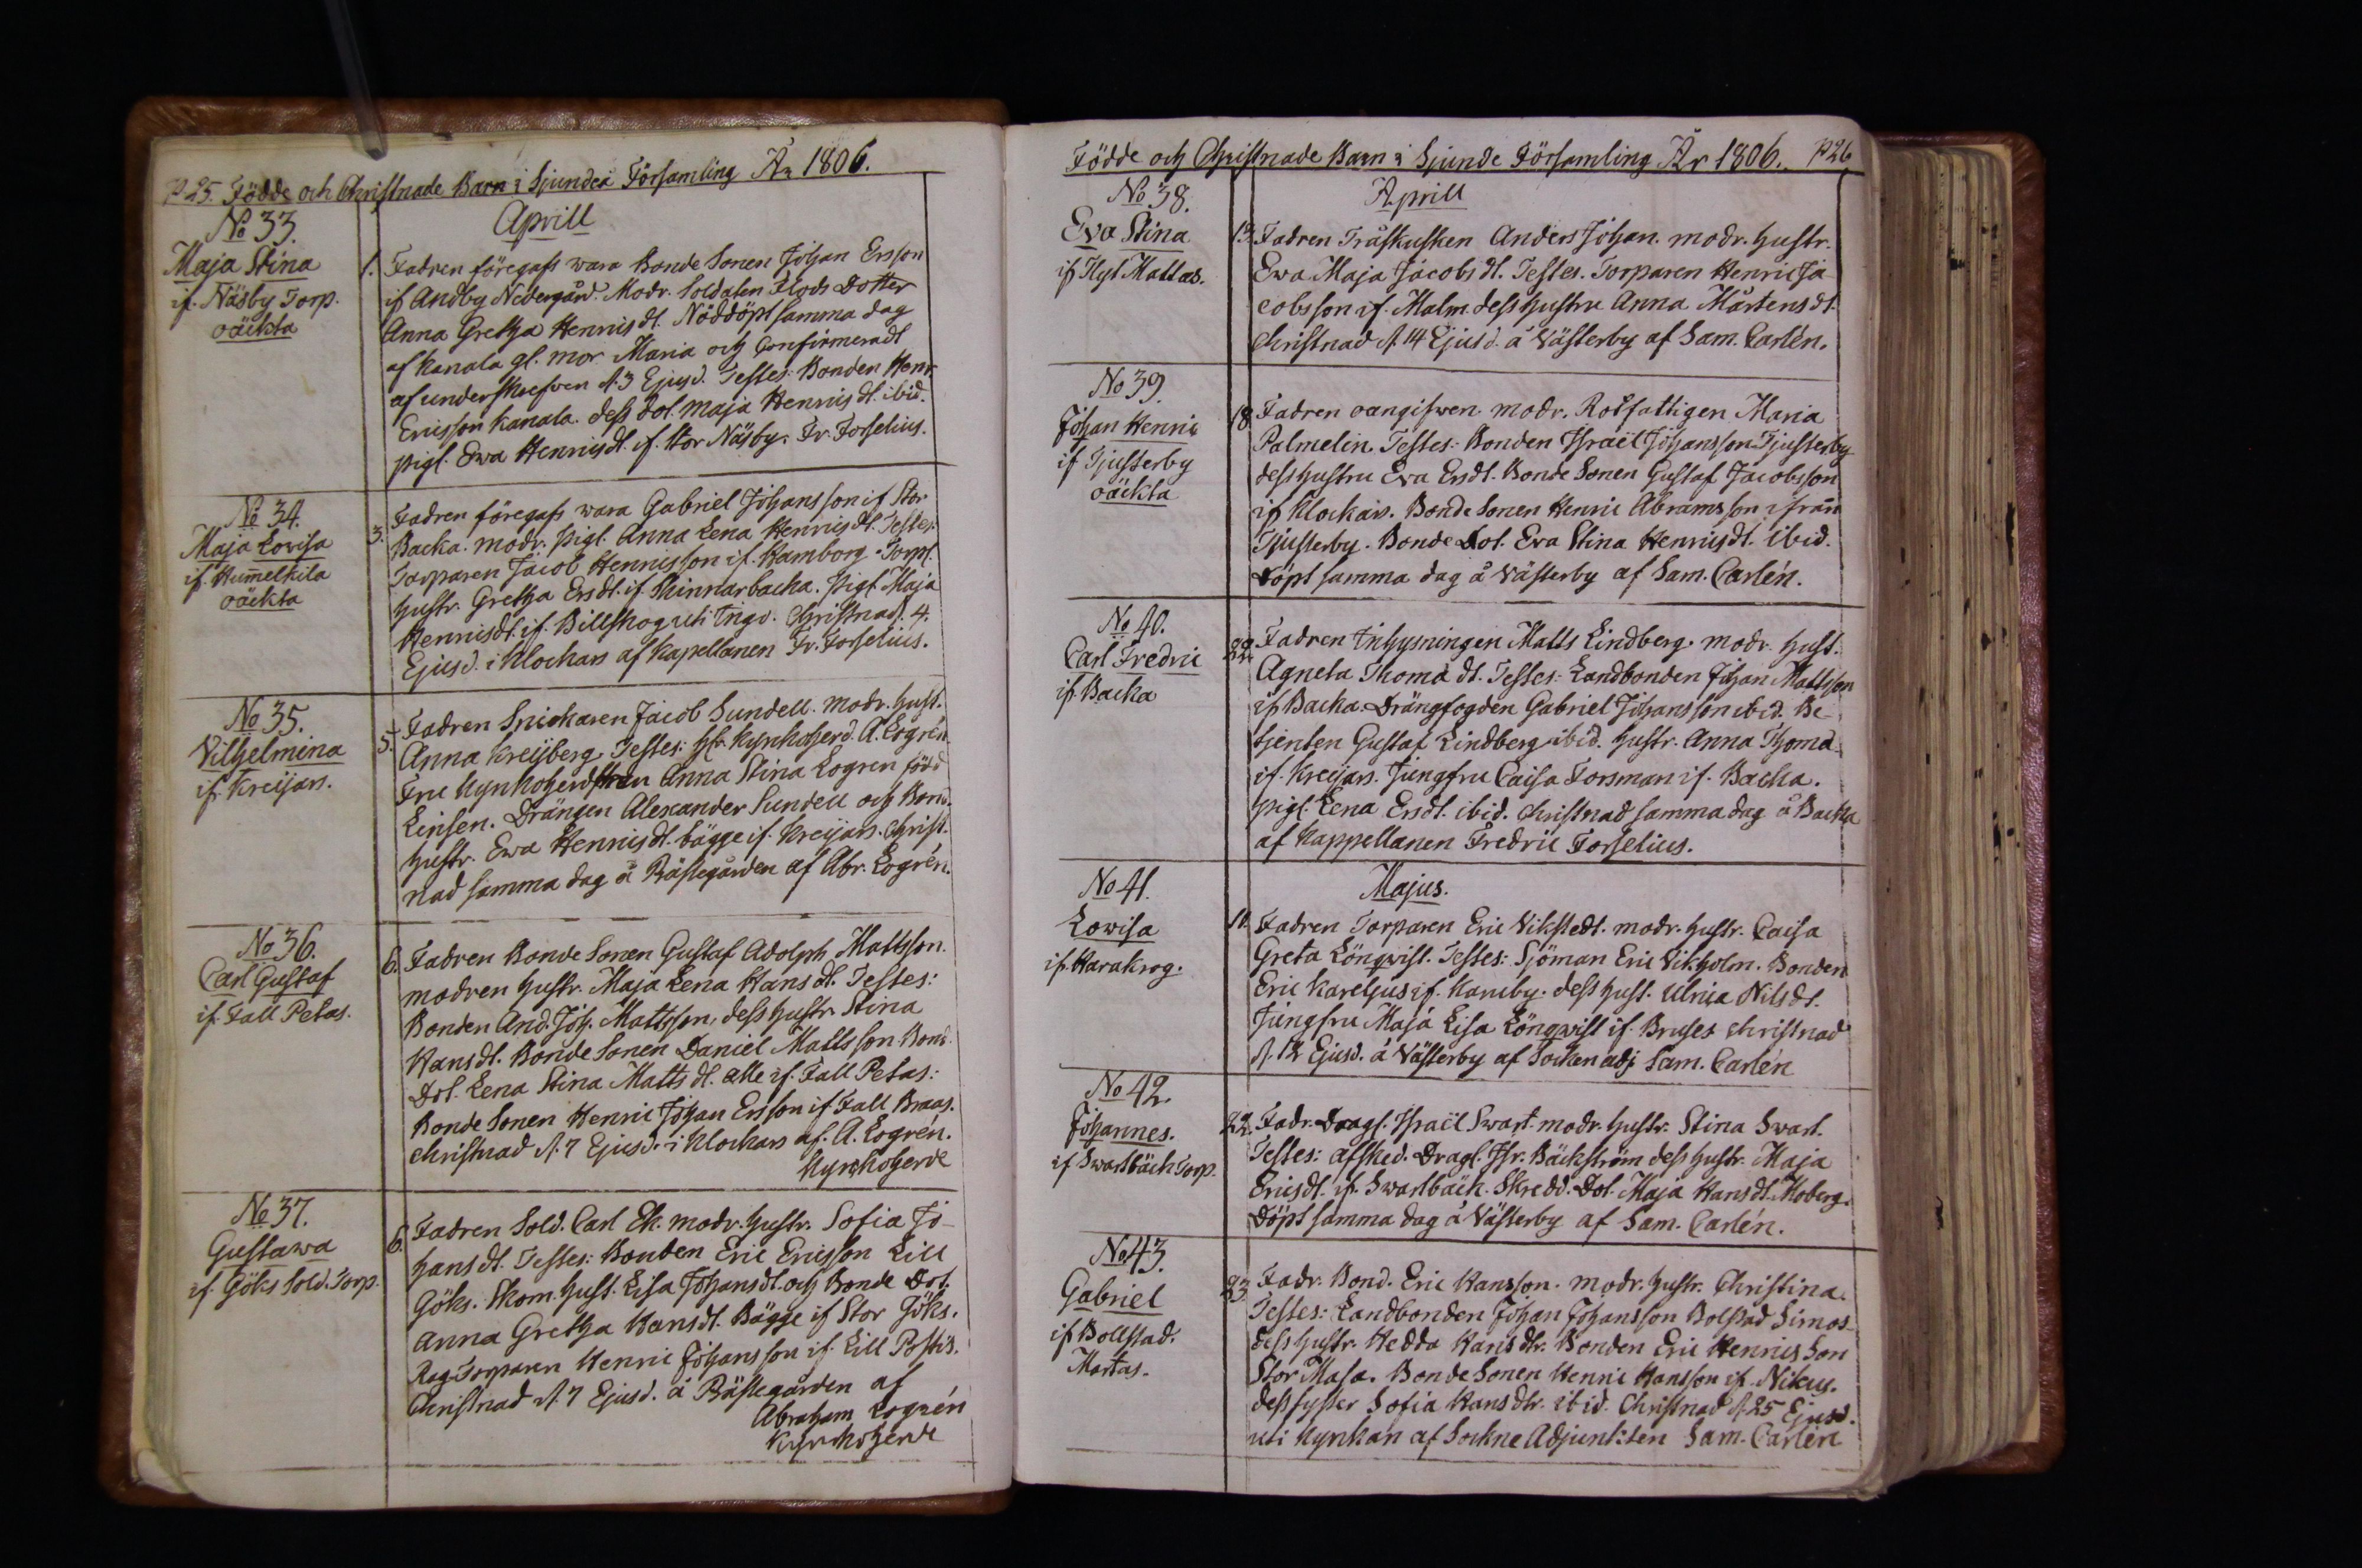 P 25. Födde och Christnade Barn i Sjundeå Församling År 1806.
No 33.
Maja Stina
if. Näsby Torp.
oäckta
Aprill
1. Fadren föregafs wara Bonde Sonen Johan Ersson
if Andby Nedergård. Modr. Soldaten Flods Dotter
Anna Gretha Henrics dt. Nöddöpt samma dag
af Kanala gl. mor Maria och Confirmeradt
af underskrefven d. 3 Ejusd. Testes: Bonden Henr.
Ericsson Kanala. dess dot. Maja Henrics dt. ibid.
pigl. Ewa Henricsdt. if. Stor Näsby. Fr. Forselius.
No 34.
Maja Lovisa
if. Hum̄elkila
oäckta
3. Fadren föregafs wara Gabriel Johansson if Stor
Backa. modr. pigl. Anna Lena Henrics dt. Testes:
Torparen Jacob Henricsson if. Hamborg. Torpl.
hustr. Gretha Ersdt. if. Skinnarbacka. pigl Maja
Henricsdt. if. Billskog uti Ingo. Christnad. 4.
Ejusd. i Klockars af Kapellanen Fr. Forselius.
No 35.
Vilhelmina
if. Kreijars.
5. Fadren Snickaren Jacob Sundell. modr. hust.
Anna Kreijberg. Testes: Hr. Kyrkoherd. A. Logrén
Fru Kyrkoherdskan Anna Stina Logren född
Leinsen. Drängen Alexander Sundell och Bond.
hustr. Ewa Henricsdt. bägge if. Kreijars. Christ-
nad samma dag å Prästegården af Abr. Logrén.
No 36.
Carl Gustaf
if. Fall Petas.
6. Fadren Bonde Sonen Gustaf Adolph Mattsson.
modren hustr. Maja Lena Hans dt. Testes:
Bonden And. Joh. Mattsson, dess hustr. Stina
Hans dt. Bonde Sonen Daniel Mattsson Bond.
Dot. Lena Stina Matts dt. alle if. Fall Petas:
Bonde Sonen Henric Johan Ersson if Fall Braas.
christnad d. 7 Ejusd. i Klockars af. A. Logrén.
Kyrckoherde
No 37.
Gustawa
if. Göks Sold. Torp.
6. Fadren Sold. Carl Ek. modr. hustr. Sofia Jo-
hans dt. Testes: Bonden Eric Ericsson Lill
Göks. Skom. hust. Lisa Johansdt. och Bonde Dot.
Anna Gretha Hansdt. Bägge if Stor Göks.
Rag. Torparen Henric Johansson if. Lill Postis.
Christnad d. 7 Ejusd. å Prästegården af
Abraham Logrén
Kyrckoherde
Födde och Christnade Barn i Sjunde Församling År 1806. P 26
No 38.
Eva Stina
if Flyt Mattas.
Aprill
13. Fadren Träskusken Anders Johan. modr. hustr.
Ewa Maja Jacobs dt. Testes. Torparen Henric Ja
cobsson if. Malm. dess hustru Anna Mårtens dt.
christnad d. 14 Ejusd. å Västerby af Sam. Carlén.
No 39.
Johan Henric
if Tjusterby
oäckta
18. Fadren oangifwen. modr. Rotfattigen Maria
Palmelin. Testes: Bonden Israël Johansson Tjusterby
dess hustru Eva Ersdt. Bonde Sonen Gustaf Jacobsson
if Klockars. Bonde Sonen Henric Abramsson ifrån
Tjusterby. Bonde Dot. Eva Stina Henricsdt. ibid.
Döpt samma dag å Västerby af Sam. Carlén.
No 40.
Carl Fredric
if. Backa
22. Fadren Inhysningen Matts Lindberg. modr. hust.
Agneta Thomæ dt. Testes: Landbonden Johan Mattsson
if Backa. Drängfogden Gabriel Johansson ibid. Be-
tjenten Gustaf Lindberg ibid. hustr. Anna Thoma
if. Kreijars. Jungfru Caisa Forsman if. Backa.
pigl. Lena Ersdt. ibid. Christnad samma dag å Backa
af Kappellanen Fredric Forselius.
No 41.
Lowisa
if. Harakrog.
Majus.
11. Fadren Torparen Eric Vikstedt. modr. hustr. Caisa
Greta Lönqwist. Testes: Sjöman Eric Vikholm. Bonden
Eric Kareljus if. Karuby. dess hust. Ulrica Nils dt.
Jungfru Maja Lisa Lönqwist if. Bruses christnad
d. 12 Ejusd. å Västerby af Socken adj. Sam. Carlén
No 42.
Johannes.
if Swartbäck Torp.
22. Fadr. Dragl. Israël Swart. modr. hustr. Stina Swart.
Testes: afsked. Dragl. Isr. Bäckström dess hustr. Maja
Ericsdt. if. Swartbäck. Skredd. Dot. Maja Hans dt. Moberg.
Döpt samma dag å Västerby af Sam. Carlén.
No 43.
Gabriel
if Bollstad.
Martas.
23. Fadr. Bond. Eric Hansson. modr. hustr. Christina.
Testes: Landbonden Johan Johansson Bolstad Simos
dess hustr. Hedda Hans dtr. Bonden Eric Henrics Son
Stor Masa. Bonde Sonen Henric Hansson if. Nikus.
dess syster Sofia Hans dtr. ibid. Christnad d. 25 Ejusd.
uti Kyrkan af Sockne Adjunkten Sam. Carlén